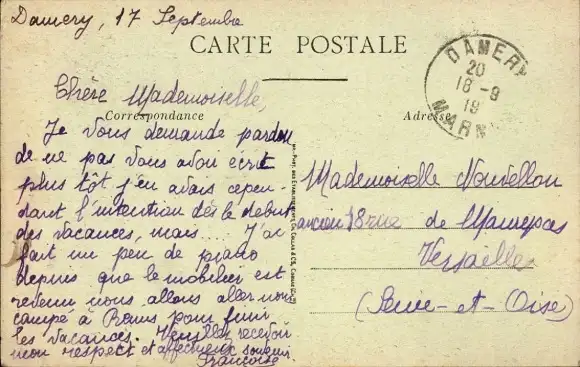 Damery, 17 Septembre
CARTE POSTALE
DAMERY
20
18 -9
19
MARNE
Chère Mademoiselle,
Correspondance
Adresse
Je vous demande pardon
de ne pas vous avoir écrit
plus tôt j'en avais cepen-
dant l'intention dès le début
des vacances, mais... J'ai
fait un peu de piano
depuis que le mobilier est
revenu nous allons aller nous
campé à Reims pour finir
les vacances. Veuillez recevoir
mon respect et affectueux souvenir
Françoise
Mademoiselle Nouvellon
18 rue de Maurepas
Versailles
(Seine-et-Oise)